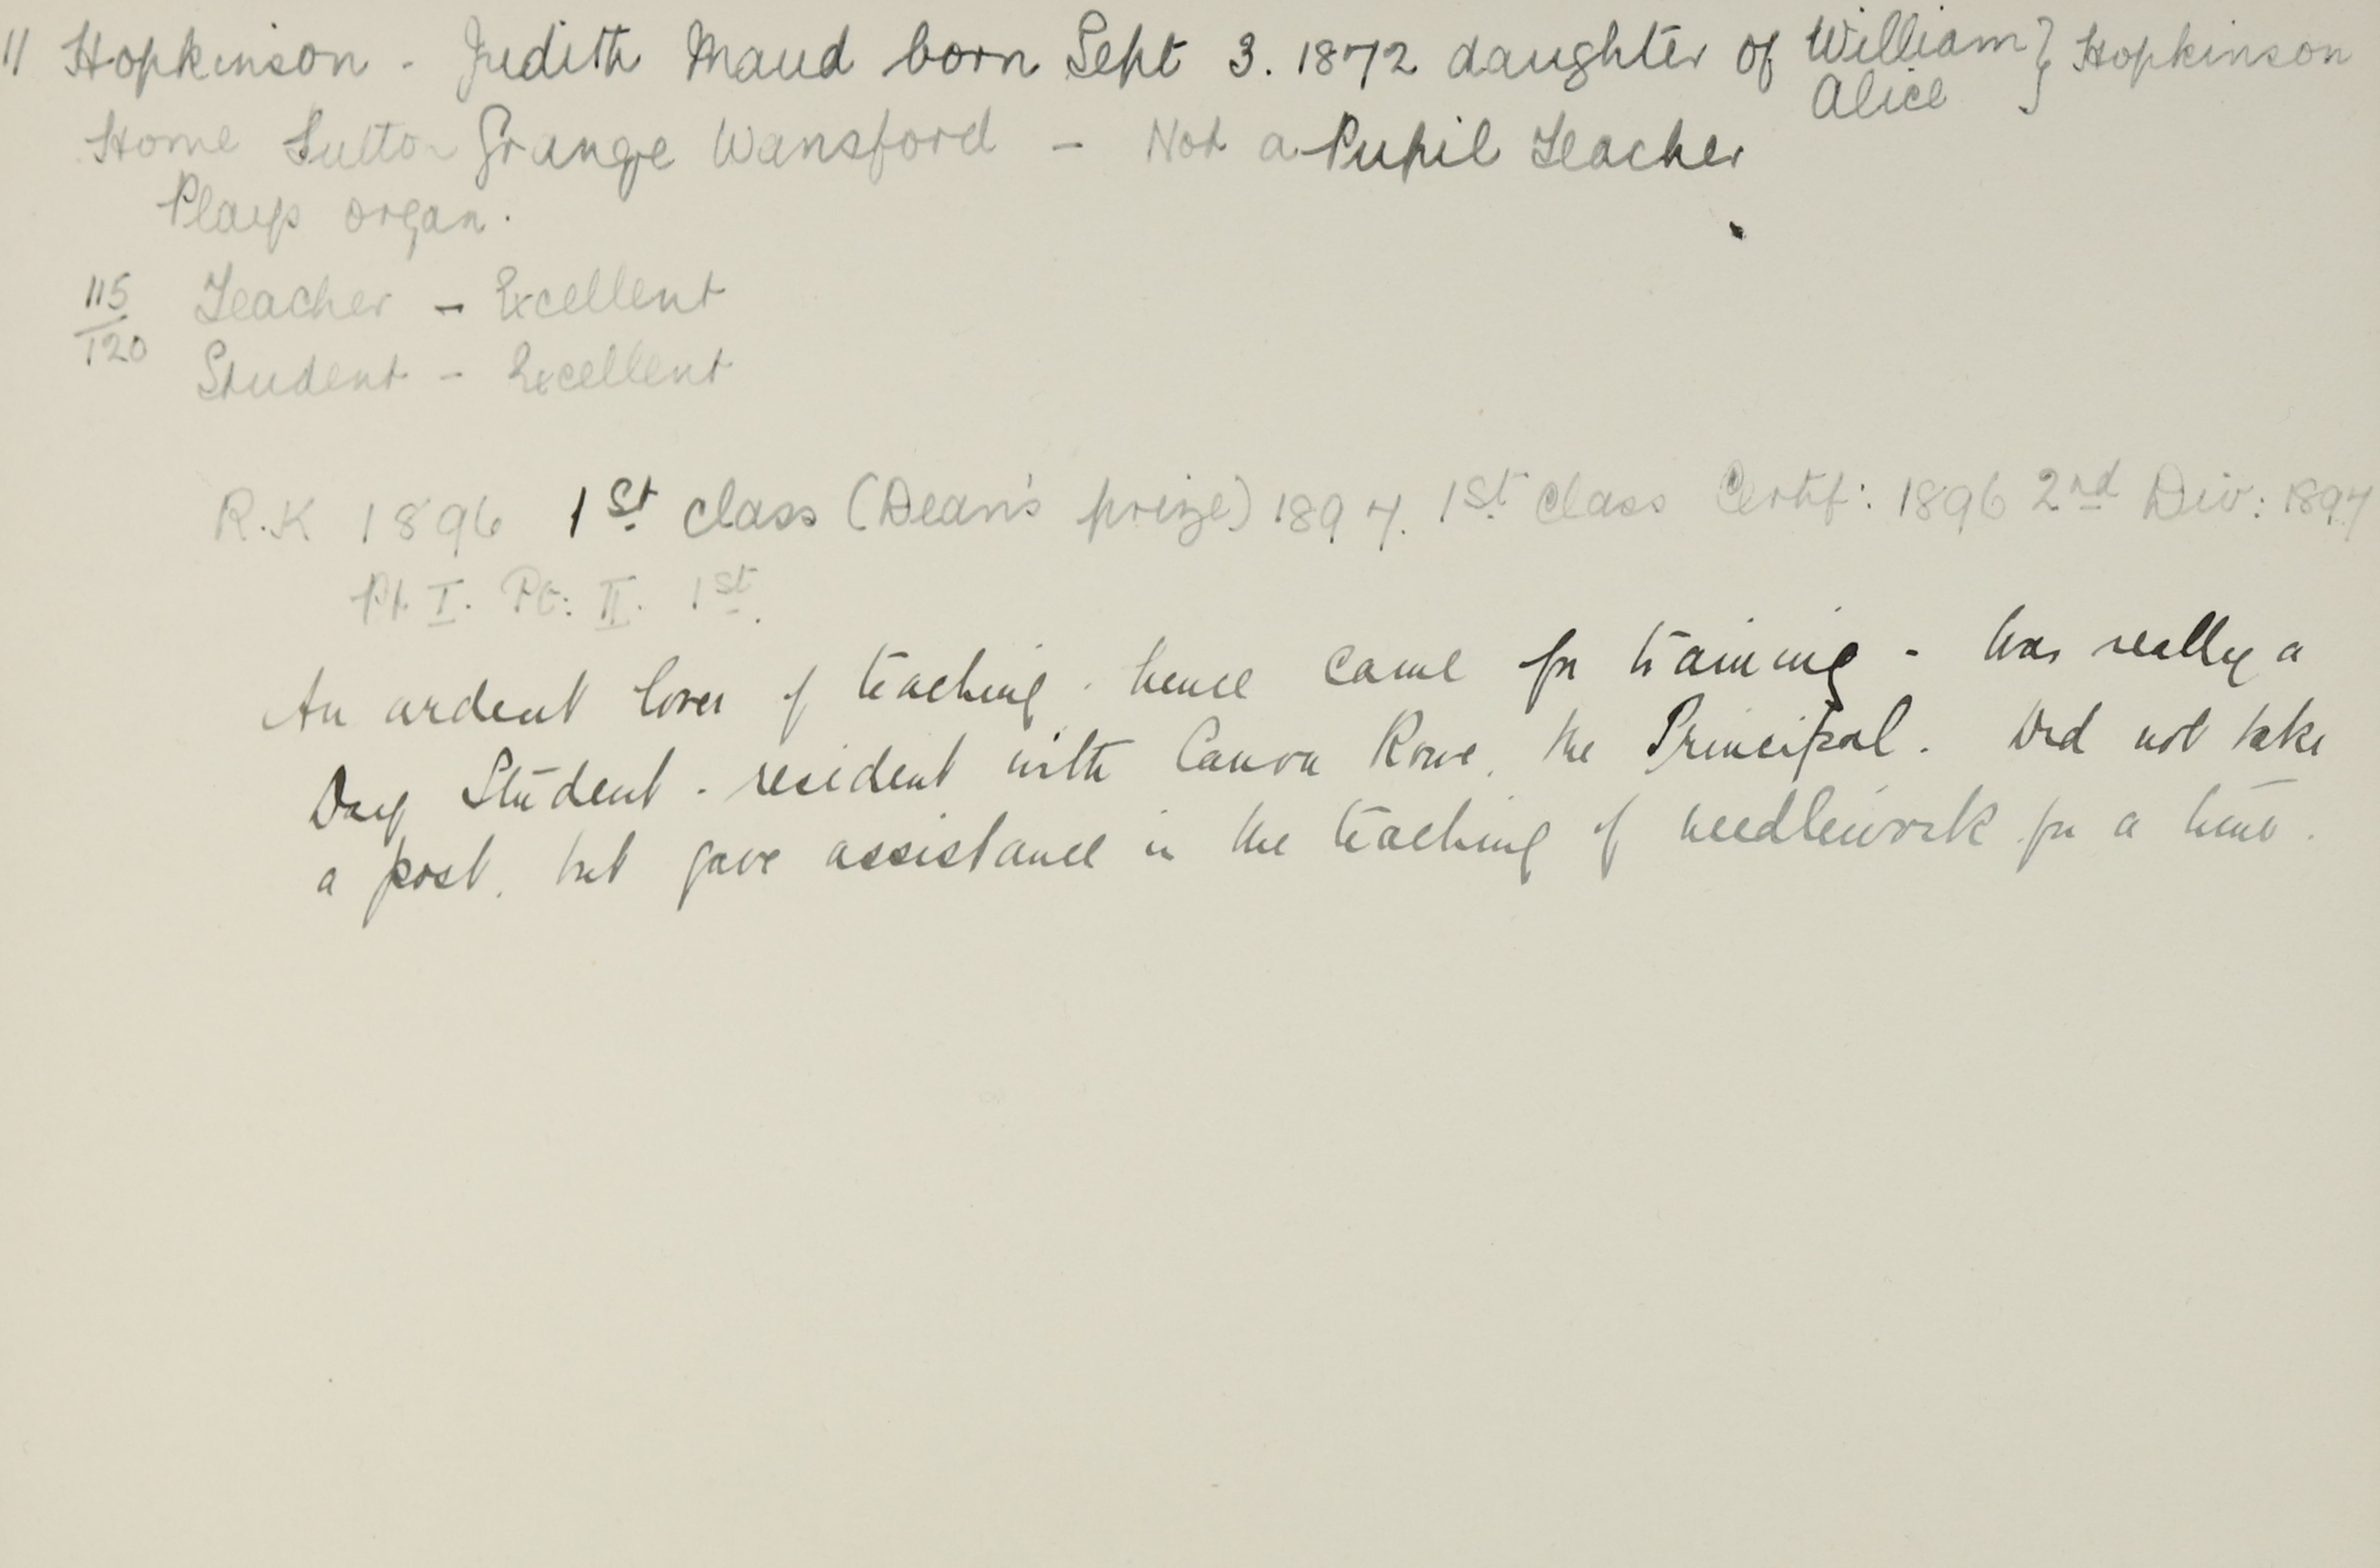 11 Hopkinson - Judith Maud born Sept 3. 1872 daughter of William } Hopkinson
Alice
Home Sutton Grange Wansford - Not a Pupil Teacher
Plays organ.
115 Teacher - Excellent
120
Student - Excellent
R.K 1896 1st class (Dean's prize) 1897. 1st Class Certif: 1896 2nd Div: 1897
Pt. I. Pt: II. 1st.
An ardent lover of teaching. hence came for training - Was really a
Day Student - resident with Canon Rowe, the Principal. Did not take
a post, but gave assistance in the teaching of needlework for a time.